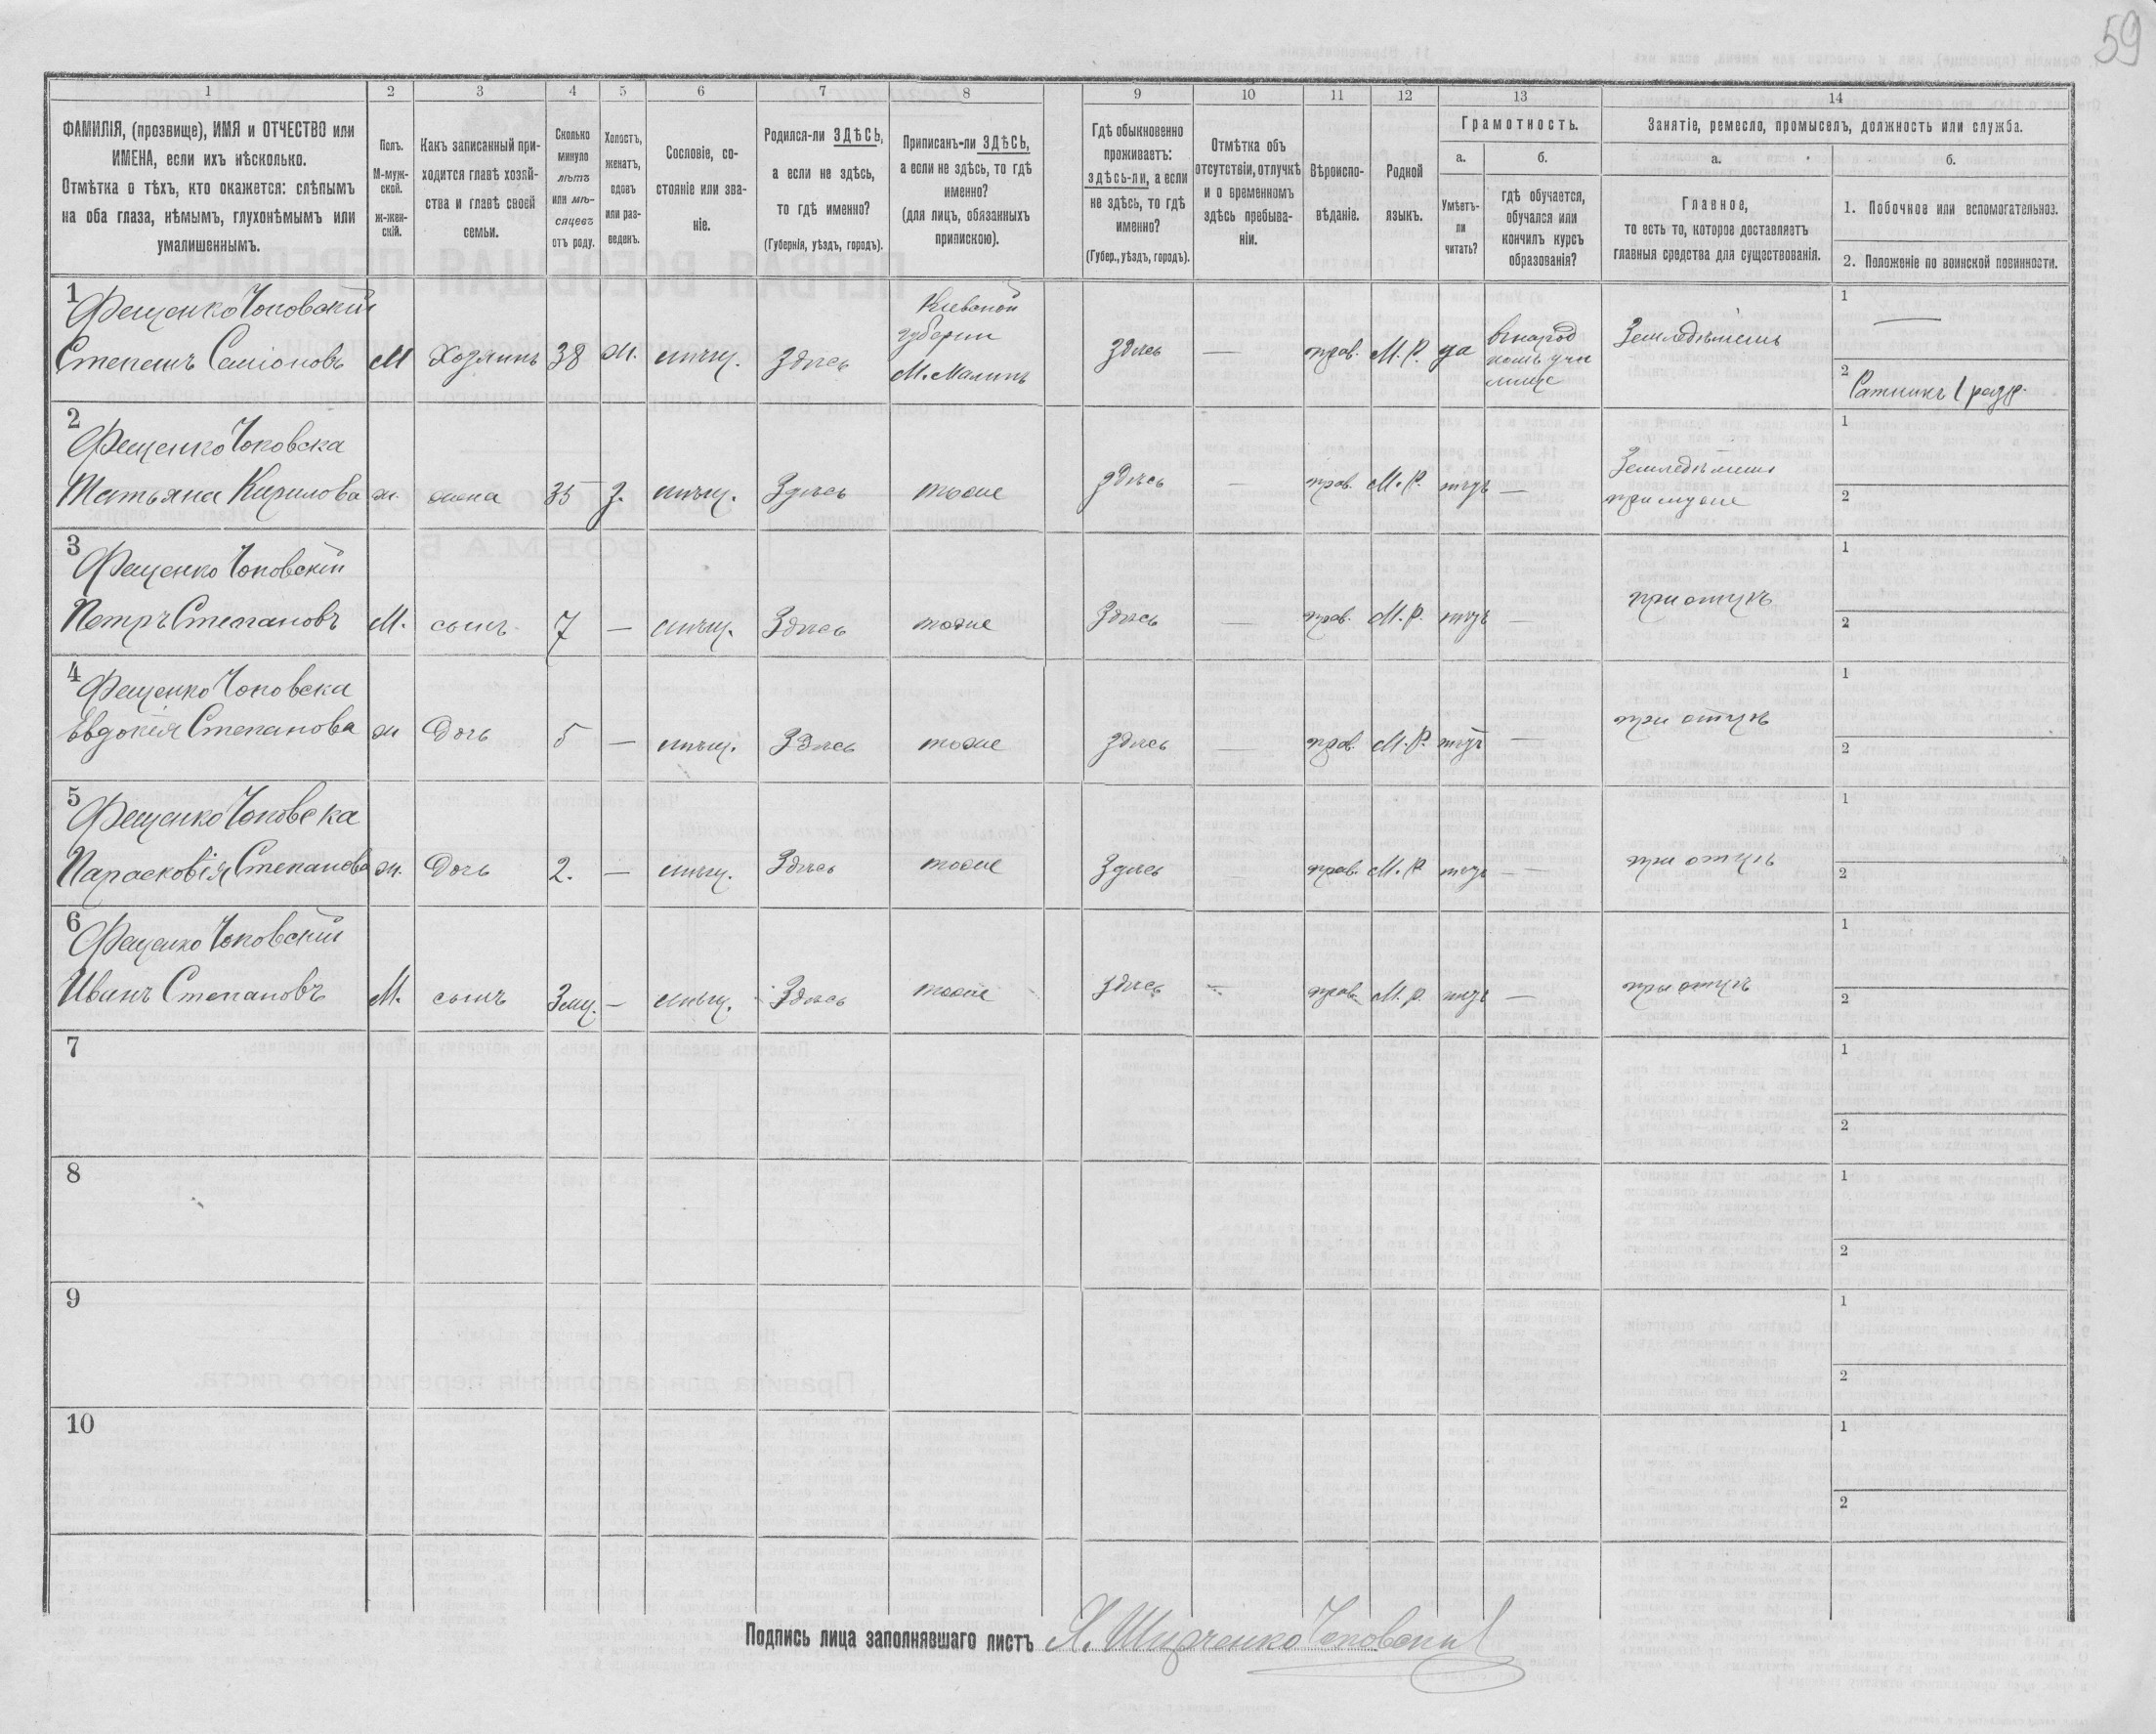 59
1 2 3 4 5 6 7 8 9 10 11 12 13 14
ФАМИЛІЯ, (прозвище), ИМЯ и ОТЧЕСТВО или
ИМЕНА, если ихъ нѣсколько.
Отмѣтка о тѣхъ, кто окажется: слѣпымъ
на оба глаза, нѣмымъ, глухонѣмымъ или
умалишеннымъ.
Полъ.
М-муж-
ской.
ж-жен-
скій.
Какъ записанный при-
ходится главѣ хозяй-
ства и главѣ своей
семьи.
Сколько
минуло
лѣтъ
или мѣ-
сяцевъ
отъ роду.
Холостъ,
женатъ,
вдовъ
или раз-
веденъ.
Сословіе, со-
стояніе или зва-
ніе.
Родился-ли ЗДѢСЬ,
а если не здѣсь,
то гдѣ именно?
(Губернія, уѣздъ, городъ).
Приписанъ-ли ЗДѢСЬ,
а если не здѣсь, то гдѣ
именно?
(для лицъ, обязанныхъ
припискою).
Гдѣ обыкновенно
проживаетъ:
здѣсь-ли, а если
не здѣсь, то гдѣ
именно?
(Губер., уѣздъ, городъ).
Отмѣтка объ
отсутствіи, отлучкѣ
и о временномъ
здѣсь пребыва-
ніи.
Вѣроиспо-
вѣданіе.
Родной
языкъ.
Грамотность.
а.
Умѣетъ-
ли
читать?
б.
гдѣ обучается,
обучался или
кончилъ курсъ
образованія?
Занятіе, ремесло, промыселъ, должность или служба.
а.
Главное,
то есть то, которое доставляетъ
главныя средства для существованія.
б.
1. Побочное или вспомогательное.
2. Положеніе по воинской повинности.
1
Фещенко Чоповскій
Степанъ Семіоновъ М Хозяинъ 38 ж. мѣщ. Здѣсь
Кіевской
губерніи
М. Малинъ
здѣсь — прав. М. Р. да
в народ
номъ учи
лище
Земледѣлецъ
1 —
2 Ратникъ 1 разр.
2
Фещенко Чоповска
Татьяна Кирилова ж. жена 35 з. мѣщ. Здѣсь тоже здѣсь — прав. М. Р. нѣтъ —
Земледѣлецъ
при муже
1
2
3
Фещенко Чоповскій
Петръ Степановъ М. сынъ 7 — мѣщ. Здѣсь тоже Здѣсь — прав. М. Р. нѣтъ — при отцѣ
1
2
4
Фещенко Чоповска
Евдокія Степанова ж Дочь 5 — мѣщ. Здѣсь тоже здѣсь — прав. М. Р. нѣтъ — при отцѣ
1
2
5
Фещенко Чоповска
Парасковія Степанова ж. Дочь 2. — мѣщ. Здѣсь тоже Здѣсь — прав. М. Р нѣтъ — при отцѣ
1
2
6
Фещенко Чоповскій
Иванъ Степановъ М. сынъ 3 мц. — мѣщ. Здѣсь тоже здѣсь — прав. М. р. нѣтъ — при отцѣ
1
2
7
1
2
8
1
2
9
1
2
10
1
2
Подпись лица заполнявшаго листъ Чоповскій